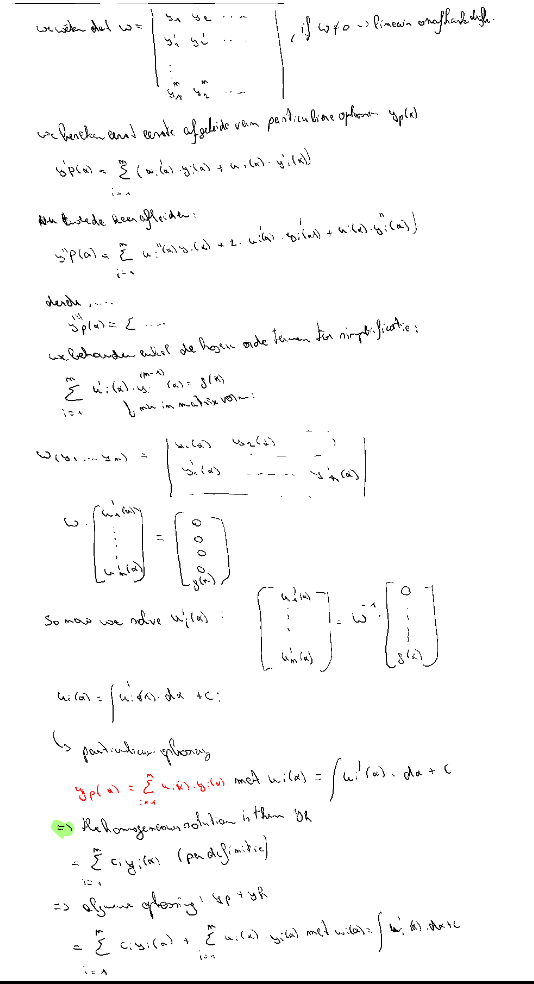 we weten dat W = | y₁ y₂ .... | , if W ≠ 0 → lineair onafhankelijk.
y₁' y₂' ....
⋮
y₁ᵐ y₂ᵐ ....
we bereken eerst eerste afgeleide van particuliere oplossen yp(x)
y'p(x) = Σ_{i=1}^{m} (uᵢ'(x)·yᵢ(x) + uᵢ(x)·yᵢ'(x))
tweede keer afleiden:
y''p(x) = Σ_{i=1}^{m} uᵢ''(x) yᵢ(x) + 2·uᵢ'(x)·yᵢ'(x) + uᵢ(x)·yᵢ''(x)}
derde, ....
y'''p(x) = Σ ....
we behouden enkel de hogere orde termen ter simplificatie:
Σ_{i=1}^{m} uᵢ'(x)·yᵢ^(m-1)(x) = g(x)
↓ in matrix vorm:
W(y₁ ... yₘ) = | y₁(x) y₂(x) ... |
y₁'(x) ...... yₘ'(x)
W · [u₁'(x) ⋮ uₘ'(x)] = [0 0 0 0 g(x)]
So now we solve uᵢ'(x) : [u₁'(x) ⋮ uₘ'(x)] = W⁻¹ · [0 ⋮ g(x)]
uᵢ(x) = ∫ uᵢ'(x)·dx + C;
↳ particuliere oplossing
yp(x) = Σ_{i=1}^{m} uᵢ(x)·yᵢ(x) met uᵢ(x) = ∫ uᵢ'(x)·dx + C
⇒ the homogeneous solution is then yh
= Σ_{i=1}^{m} cᵢ yᵢ(x) (per definitie)
⇒ algemene oplossing: yp + yh
= Σ_{i=1}^{m} cᵢ yᵢ(x) + Σ_{i=1}^{m} uᵢ(x) yᵢ(x) met uᵢ(x) = ∫ uᵢ'(x)·dx + C